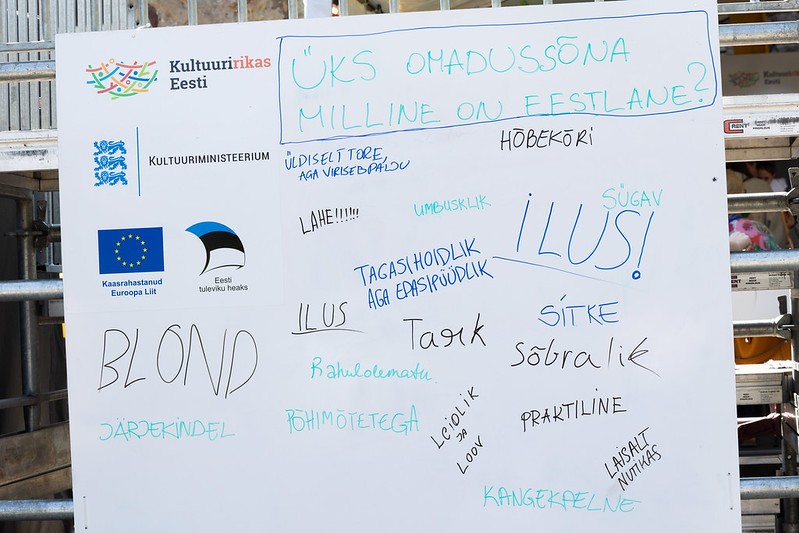 Kultuuririkas
Eesti
KULTUURIMINISTEERIUM
Kaasrahastanud
Euroopa Liit
Eesti
tuleviku heaks
ÜKS OMADUSSÕNA
MILLINE ON EESTLANE?
HÕBEKÕRI
ÜLDISELT TORE,
AGA VIRISEB PALJU
SÜGAV
UMBUSKLIK
LAHE!!!!!!
İLUS!
TAGASIHOIDLIK
AGA EPASIPÜÜDLIK
SİTKE
ILUS
Tark
BLOND
Sõbralik
Rahulolematu
PRAKTILINE
PÕHIMÕTETEGA
LEIDLIK
JA
LOOV
JÄRJEKINDEL
LAISALT
NUTIKAS
KANGEKAELNE